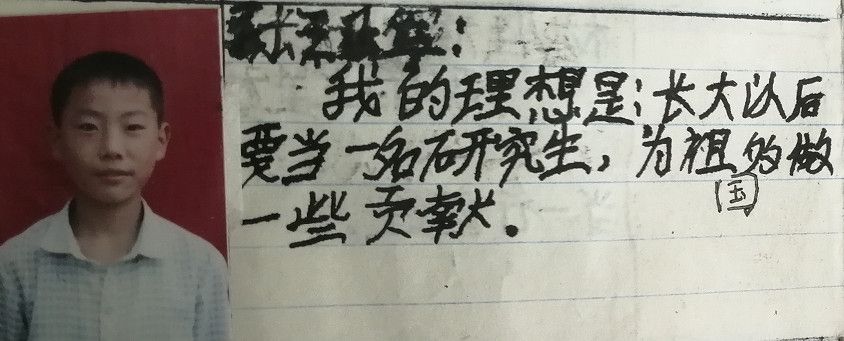 我的理想是：长大以后
要当一名研究生，为祖的做
国
一些贡献。